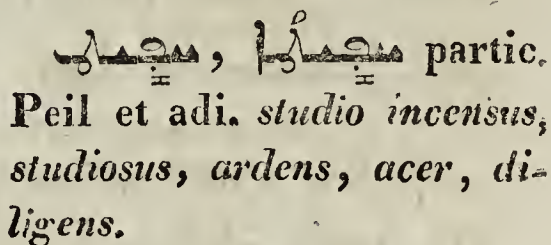 ܚܦܝܛ, ܚܦܝܛܳܐ partic.
Peil et adi. studio incensus,
studiosus, ardens, acer, di-
ligens.